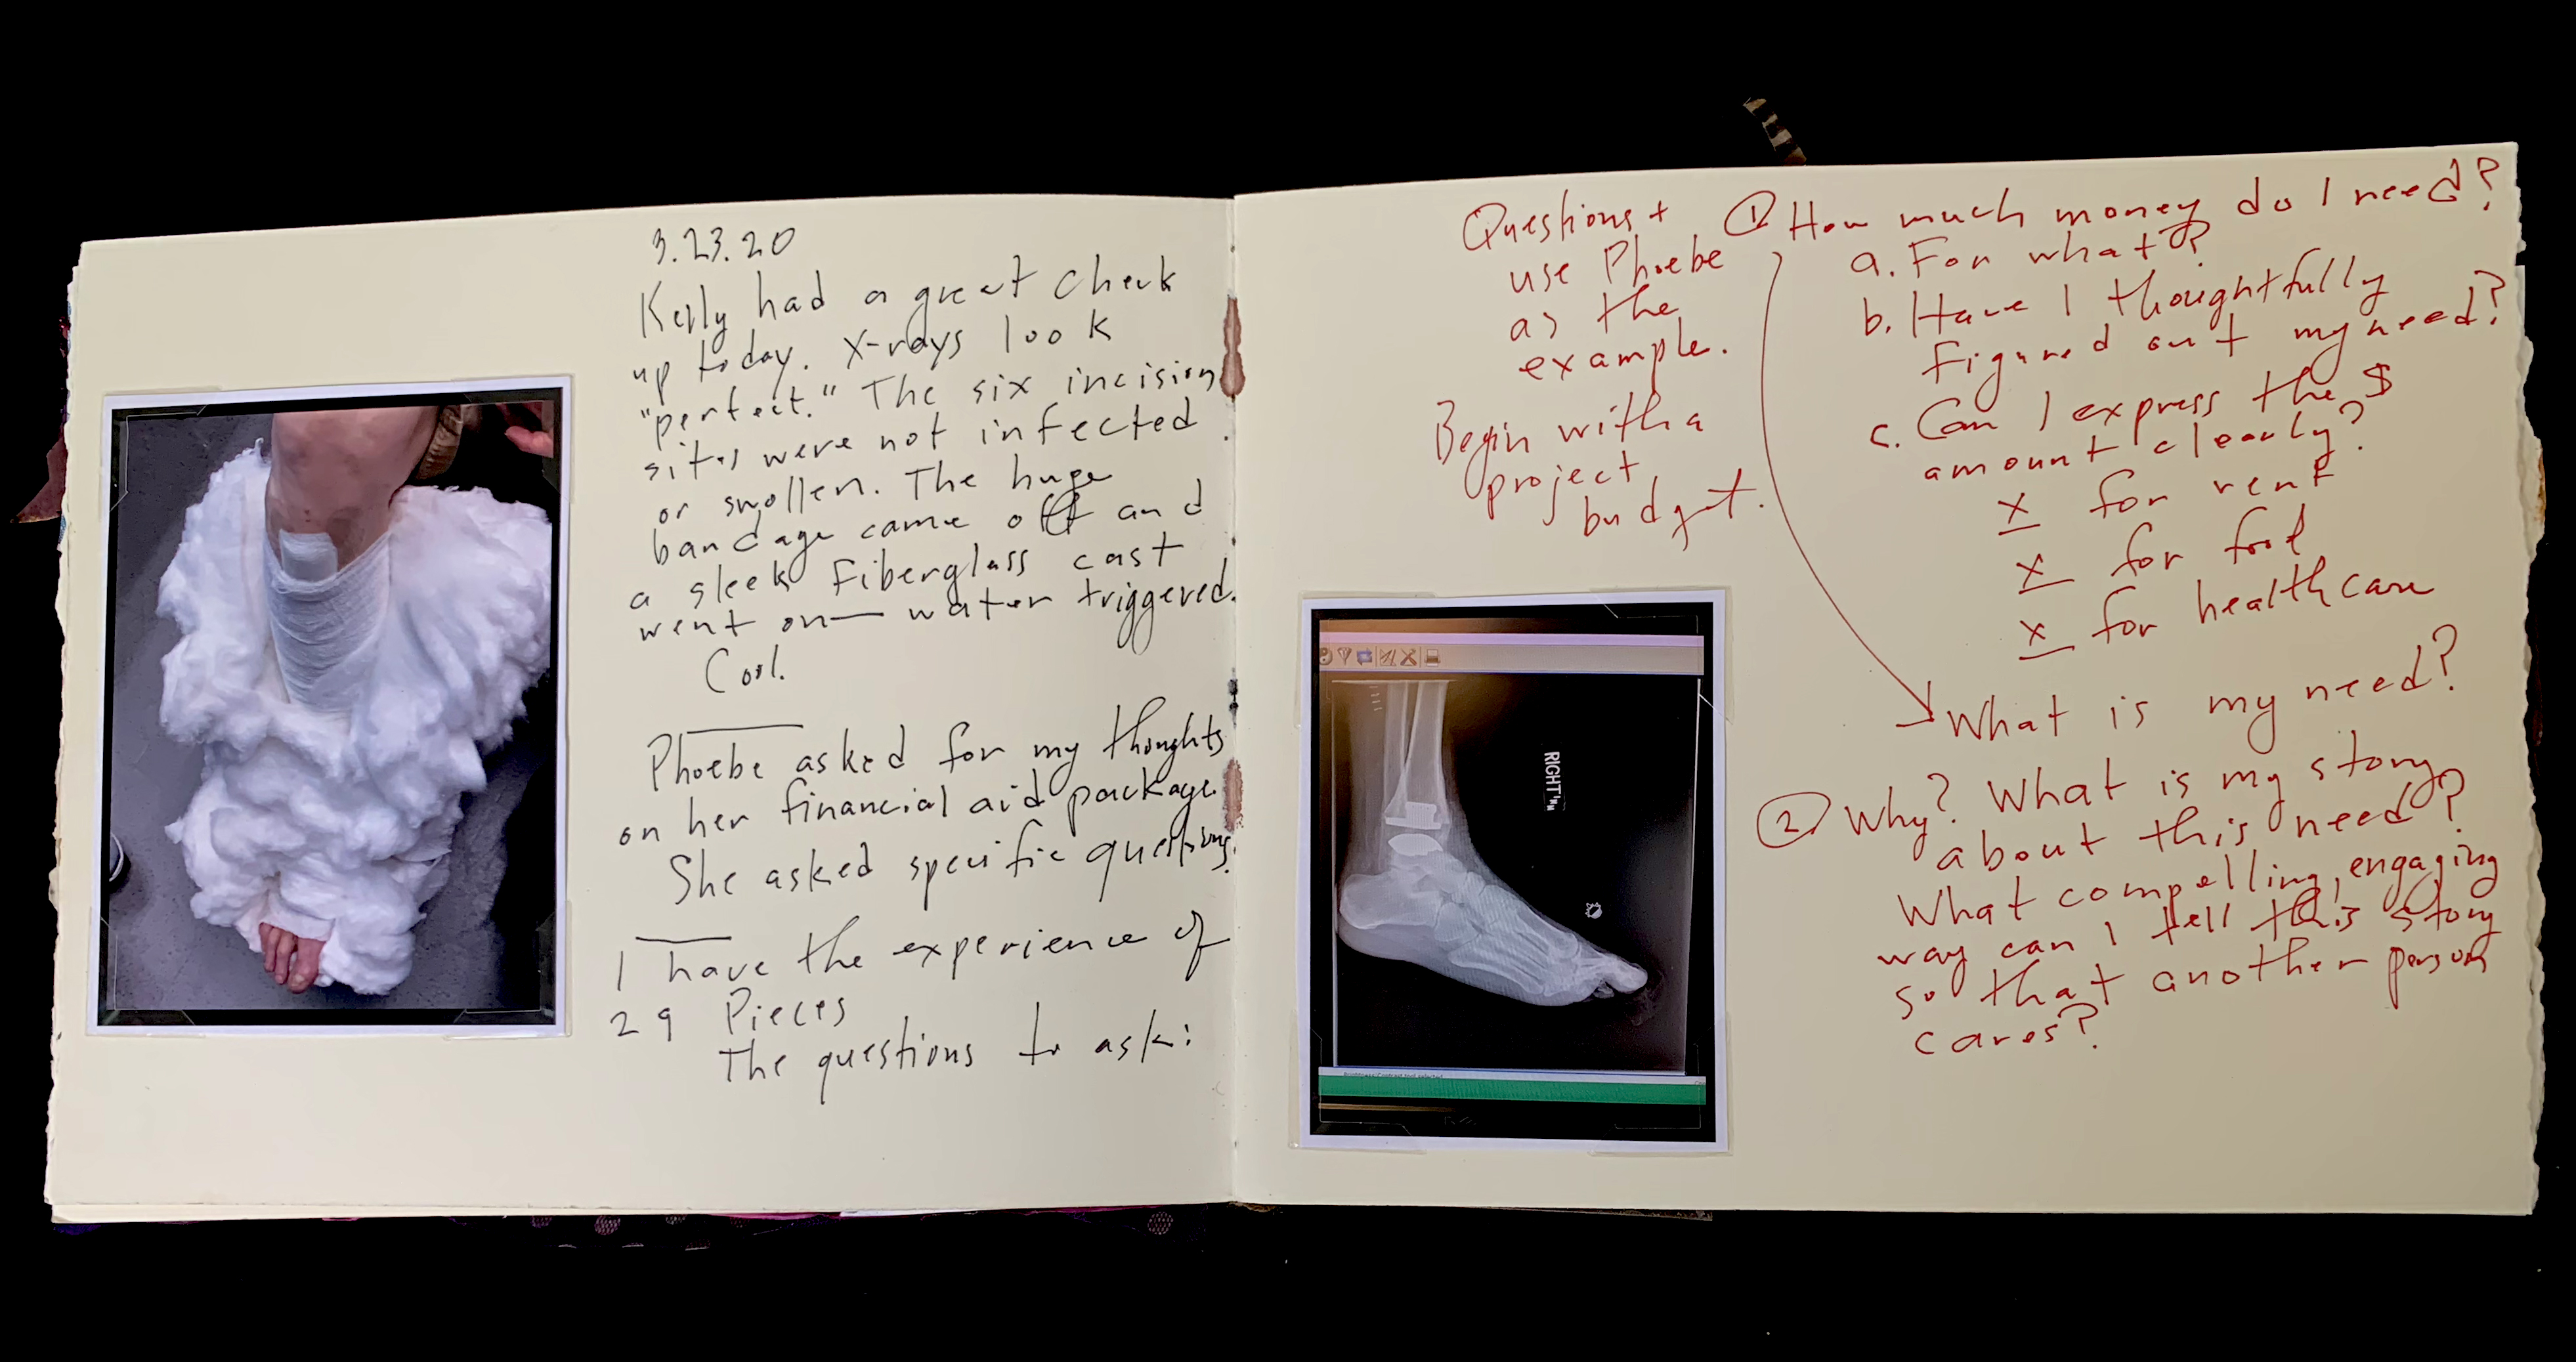 3.23.20
Kelly had a great check
up today. X-rays look
"perfect." The six incision
sites were not infected
or swollen. The huge
bandage came off and
a sleek Fiberglass cast
went on — water triggered.
Cool.
Phoebe asked for my thoughts
on her financial aid package.
She asked specific questions.
I have the experience of
29 Pieces
The questions to ask:
Questions +
use Phoebe
as the
example.
Begin with a
project
budget.
RIGHT
① How much money do I need?
a. For what?
b. Have I thoughtfully
figured out my need?
c. Can I express the $
amount clearly?
x for rent
x for food
x for healthcare
What is my need?
② Why? What is my story
about this need?
What compelling, engaging
way can I tell this story
so that another person
cares?